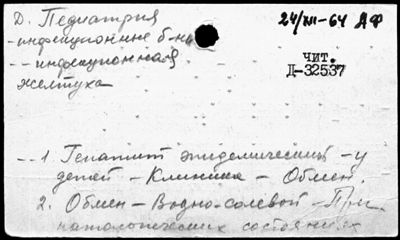 Д. Педиатрия
24/XII-64 АФ
-инфекционные б-ни
-- инфекционная
желтуха
ЧИТ.
Д-32537
-- 1. Гепатит эпидемический - у
детей - Клиника - Обмен.
2. Обмен - Водно-солевой - При
патологических состояниях